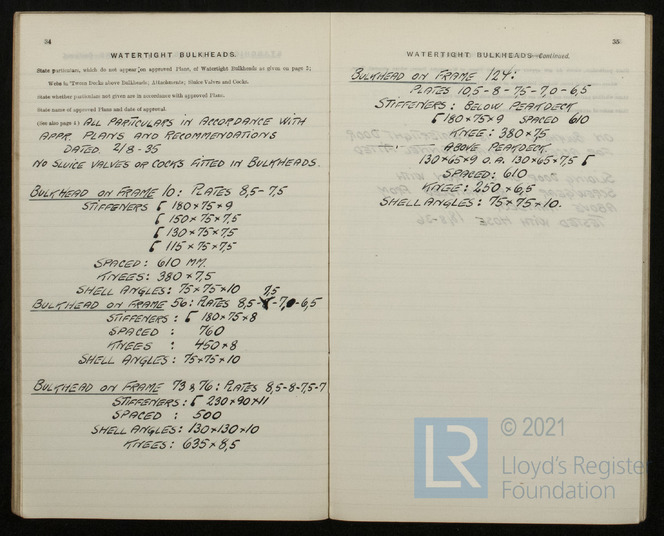 34
WATERTIGHT BULKHEADS.
State particulars, which do not appear on approved Plans, of Watertight Bulkheads as given on page 5;
Webs in 'Tween Decks above Bulkheads; Attachments; Sluice Valves and Cocks.
State whether particulars not given are in accordance with approved Plans.
State name of approved Plans and date of approval.
(See also page 4) ALL PARTICULARS IN ACCORDANCE WITH
APPR. PLANS AND RECOMMENDATIONS
DATED. 2/8-35
NO SLUICE VALVES OR COCKS FITTED IN BULKHEADS.
BULKHEAD ON FRAME 10: PLATES 8,5- 7,5
STIFFENERS 180×75×9
150×75×7,5
130×75×7,5
115×75×7,5
SPACED: 610 MM.
KNEES: 380×7,5
SHELL ANGLES: 75×75×10
7,5
BULKHEAD ON FRAME 56: PLATES 8,5- -7,0-6,5
STIFFENERS: 180×75×8
SPACED: 760
KNEES: 450×8
SHELL ANGLES: 75×75×10
BULKHEAD ON FRAME 73 & 76: PLATES 8,5-8-7,5-7
STIFFENERS: 230×90×11
SPACED: 500
SHELL ANGLES: 130×130×10
KNEES: 635×8,5
35
WATERTIGHT BULKHEADS—Continued.
BULKHEAD ON FRAME 124:
PLATES 10,5-8-7,5-7,0-6,5
STIFFENERS: BELOW PEAKDECK
180×75×9 SPACED 610
KNEE: 380×75
-"- ABOVE PEAKDECK.
130×65×9 O.A. 130×65×7,5
SPACED: 610
KNEE: 250×6,5
SHELL ANGLES: 75×75×10.
LR
© 2021
Lloyd's Register
Foundation